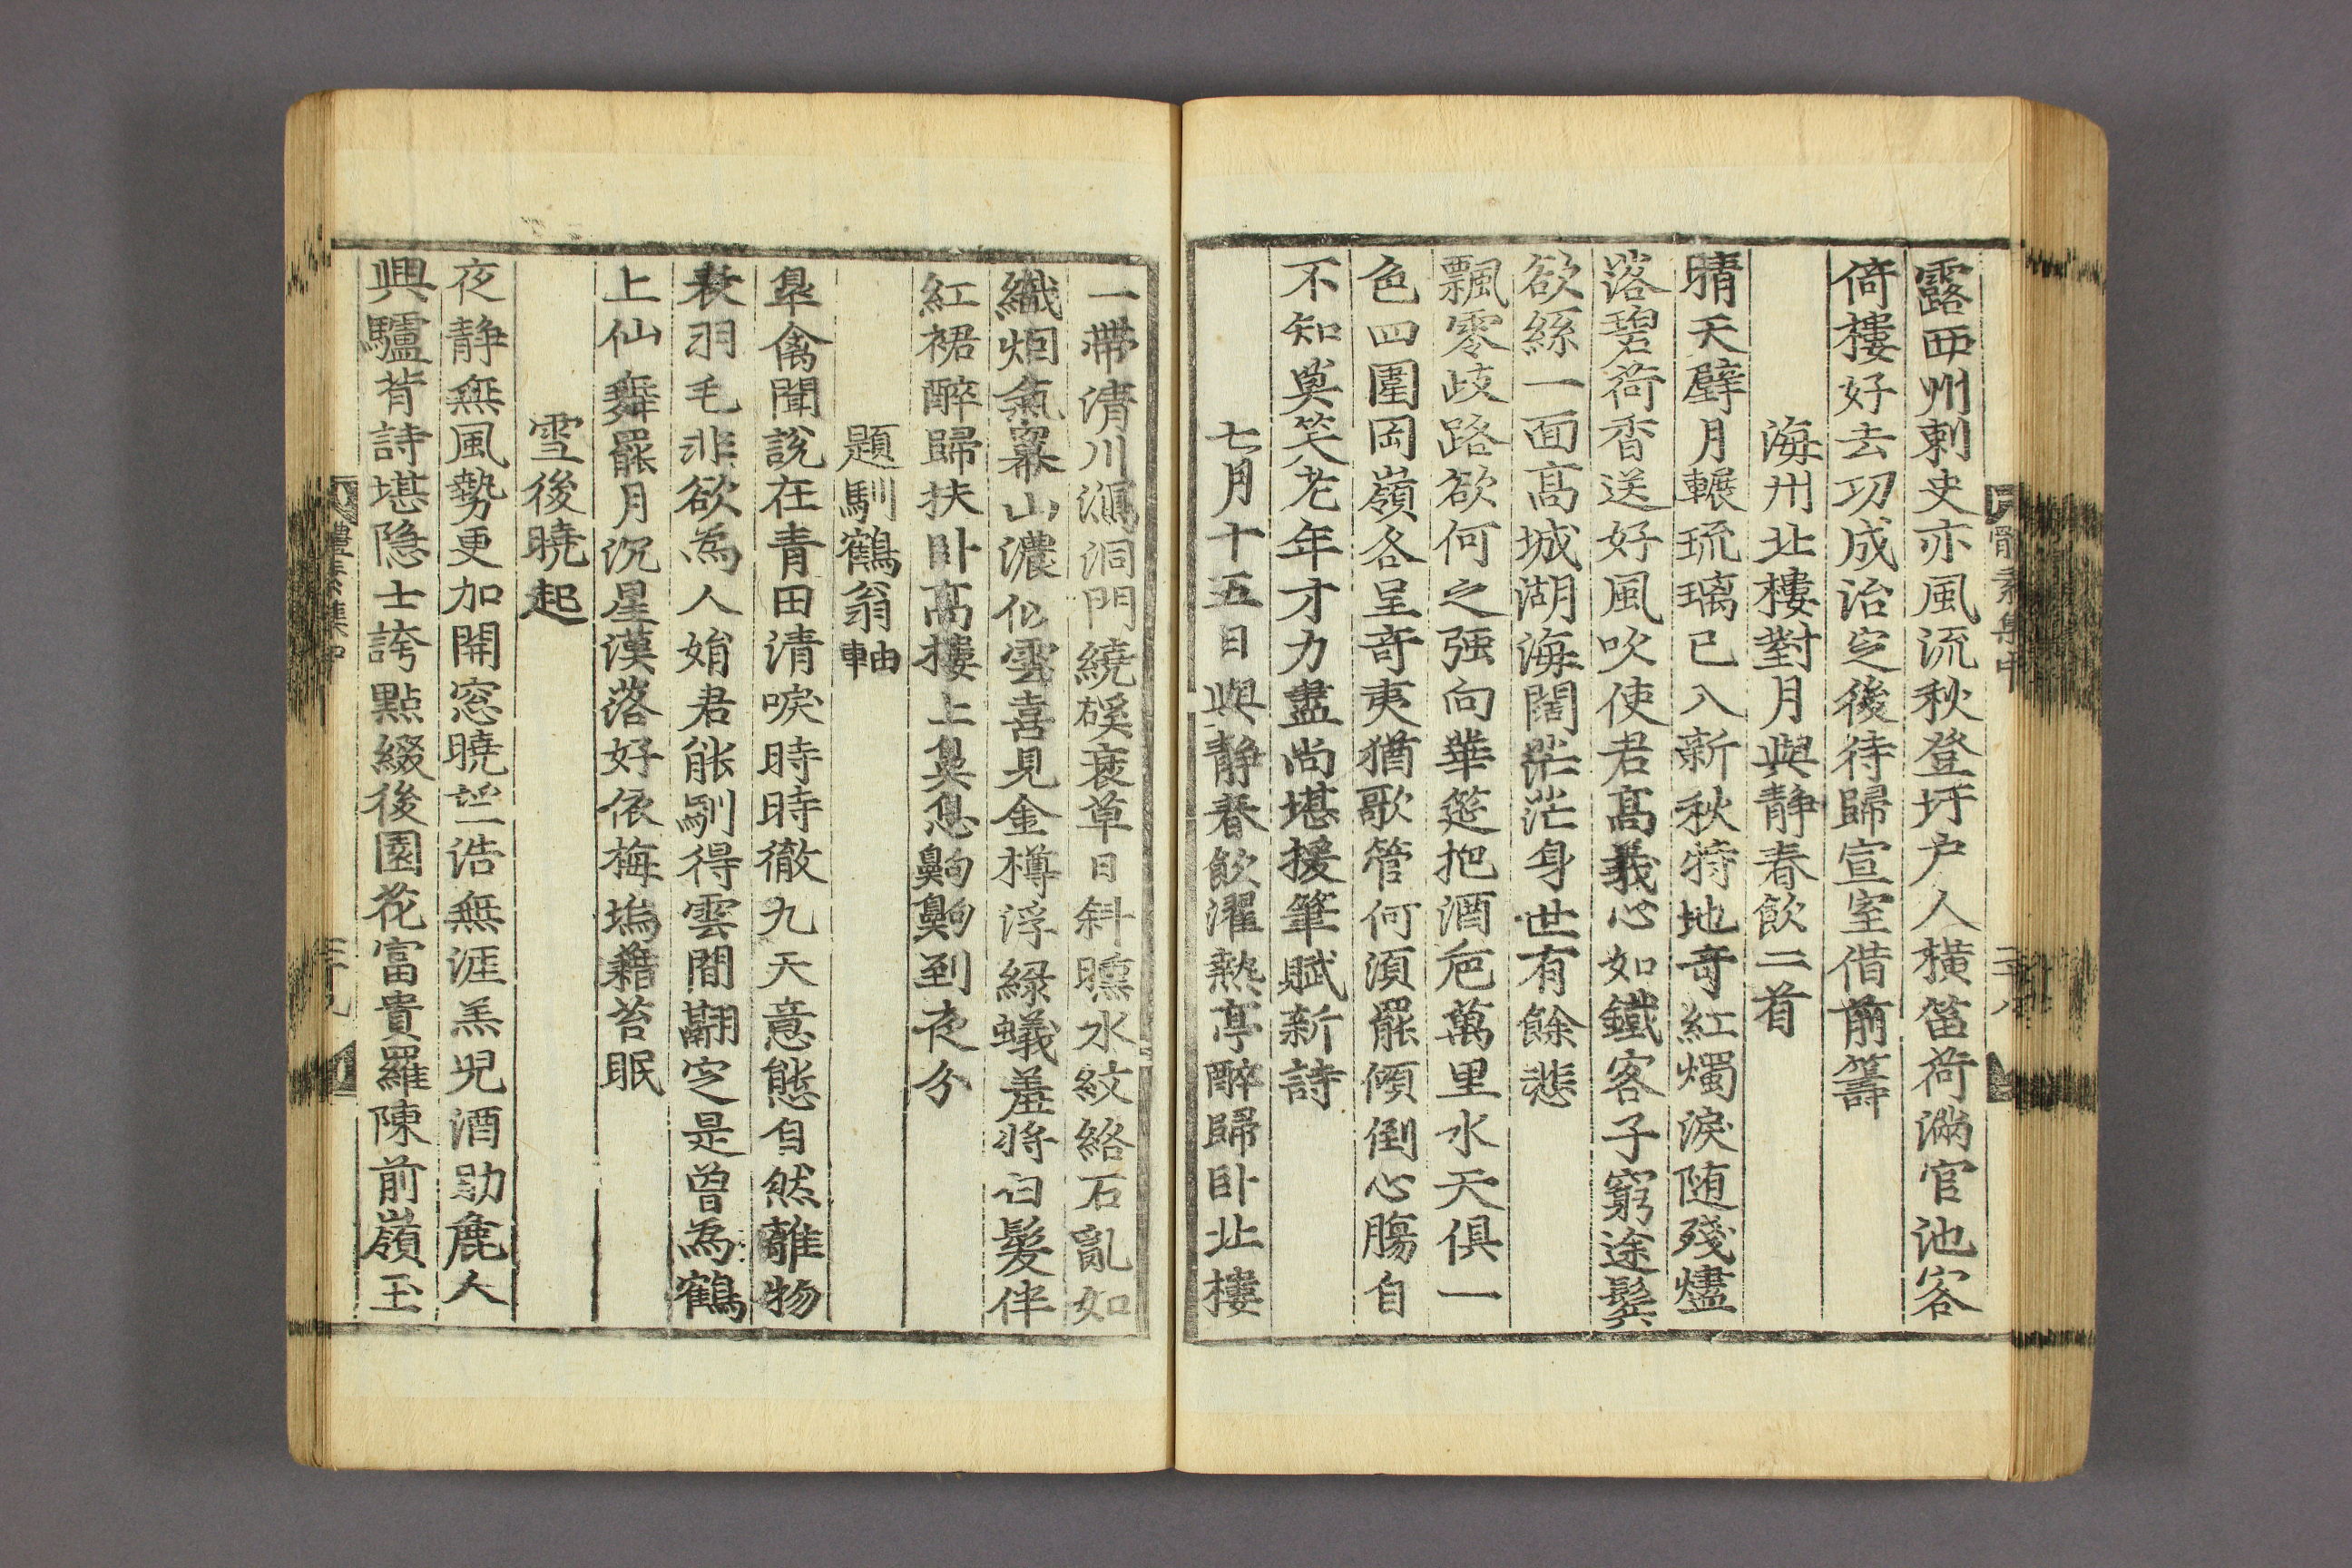 露西州刺史亦風流秋登圩户人横笛荷滿官池客
倚樓好去功成治定後待歸宣室借前籌
海州北樓對月與静春飲二首
晴天壁月輾琉璃已入新秋特地奇紅燭淚随殘燼
落碧荷香送好風吹使君高義心如鐵客子窮途鬂
欲絲一面高城湖海闊茫茫身世有餘悲
飄零歧路欲何之强向華筵把酒巵萬里水天俱一
色四圍岡嶺各呈奇夷猶歌管何須罷傾倒心膓自
不知莫笑老年才力盡尚堪援筆賦新詩
七月十五日與静春飲濯熱亭醉歸卧北樓
一帶清川㶁洞門繞磎衰草日斜曛水紋絡石亂如
織烟氣羃山濃似雲喜見金樽浮綠蟻羞将白髮伴
紅裙醉歸扶卧高樓上臭息齁齁到夜分
題馴鶴翁軸
皐禽聞說在青田清唳時時徹九天意態自然離物
表羽毛非欲爲人妍君能馴得雲間翮定是曾爲鶴
上仙舞罷月沉星漢落好依梅塢藉苔眠
雪後曉起
夜静無風勢更加開窓曉望浩無涯羔兒酒助麁人
興驢背詩堪隠士誇點綴後園花富貴羅陳前嶺玉
體素集中
二十八
體素集中